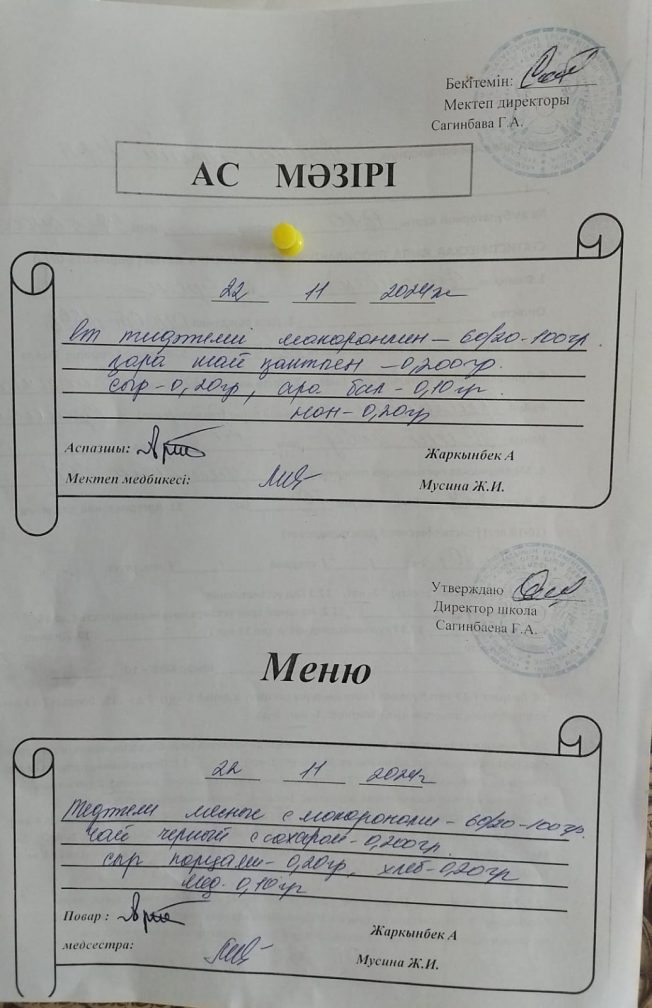 Бекітемін:
Мектеп директоры
Сагинбава Г.А.
АС МӘЗІРІ
22 11 2024ж
Ет тидтелі макаронмен – 60/20-100гр.
қара шай қантпен – 0,200гр.
сыр – 0,20гр, ара бал – 0,10гр.
нан – 0,20гр
Аспазшы:
Жаркынбек А
Мектеп медбикесі:
Мусина Ж.И.
Утверждаю
Директор школа
Сагинбаева Г.А.
Меню
22 11 2024г
Тедтели мясные с макаронами – 60/20-100гр.
чай черный с сахаром – 0,200гр.
сыр порциями – 0,20гр, хлеб – 0,20гр
мед – 0,10гр
Повар :
Жаркынбек А
медсестра:
Мусина Ж.И.